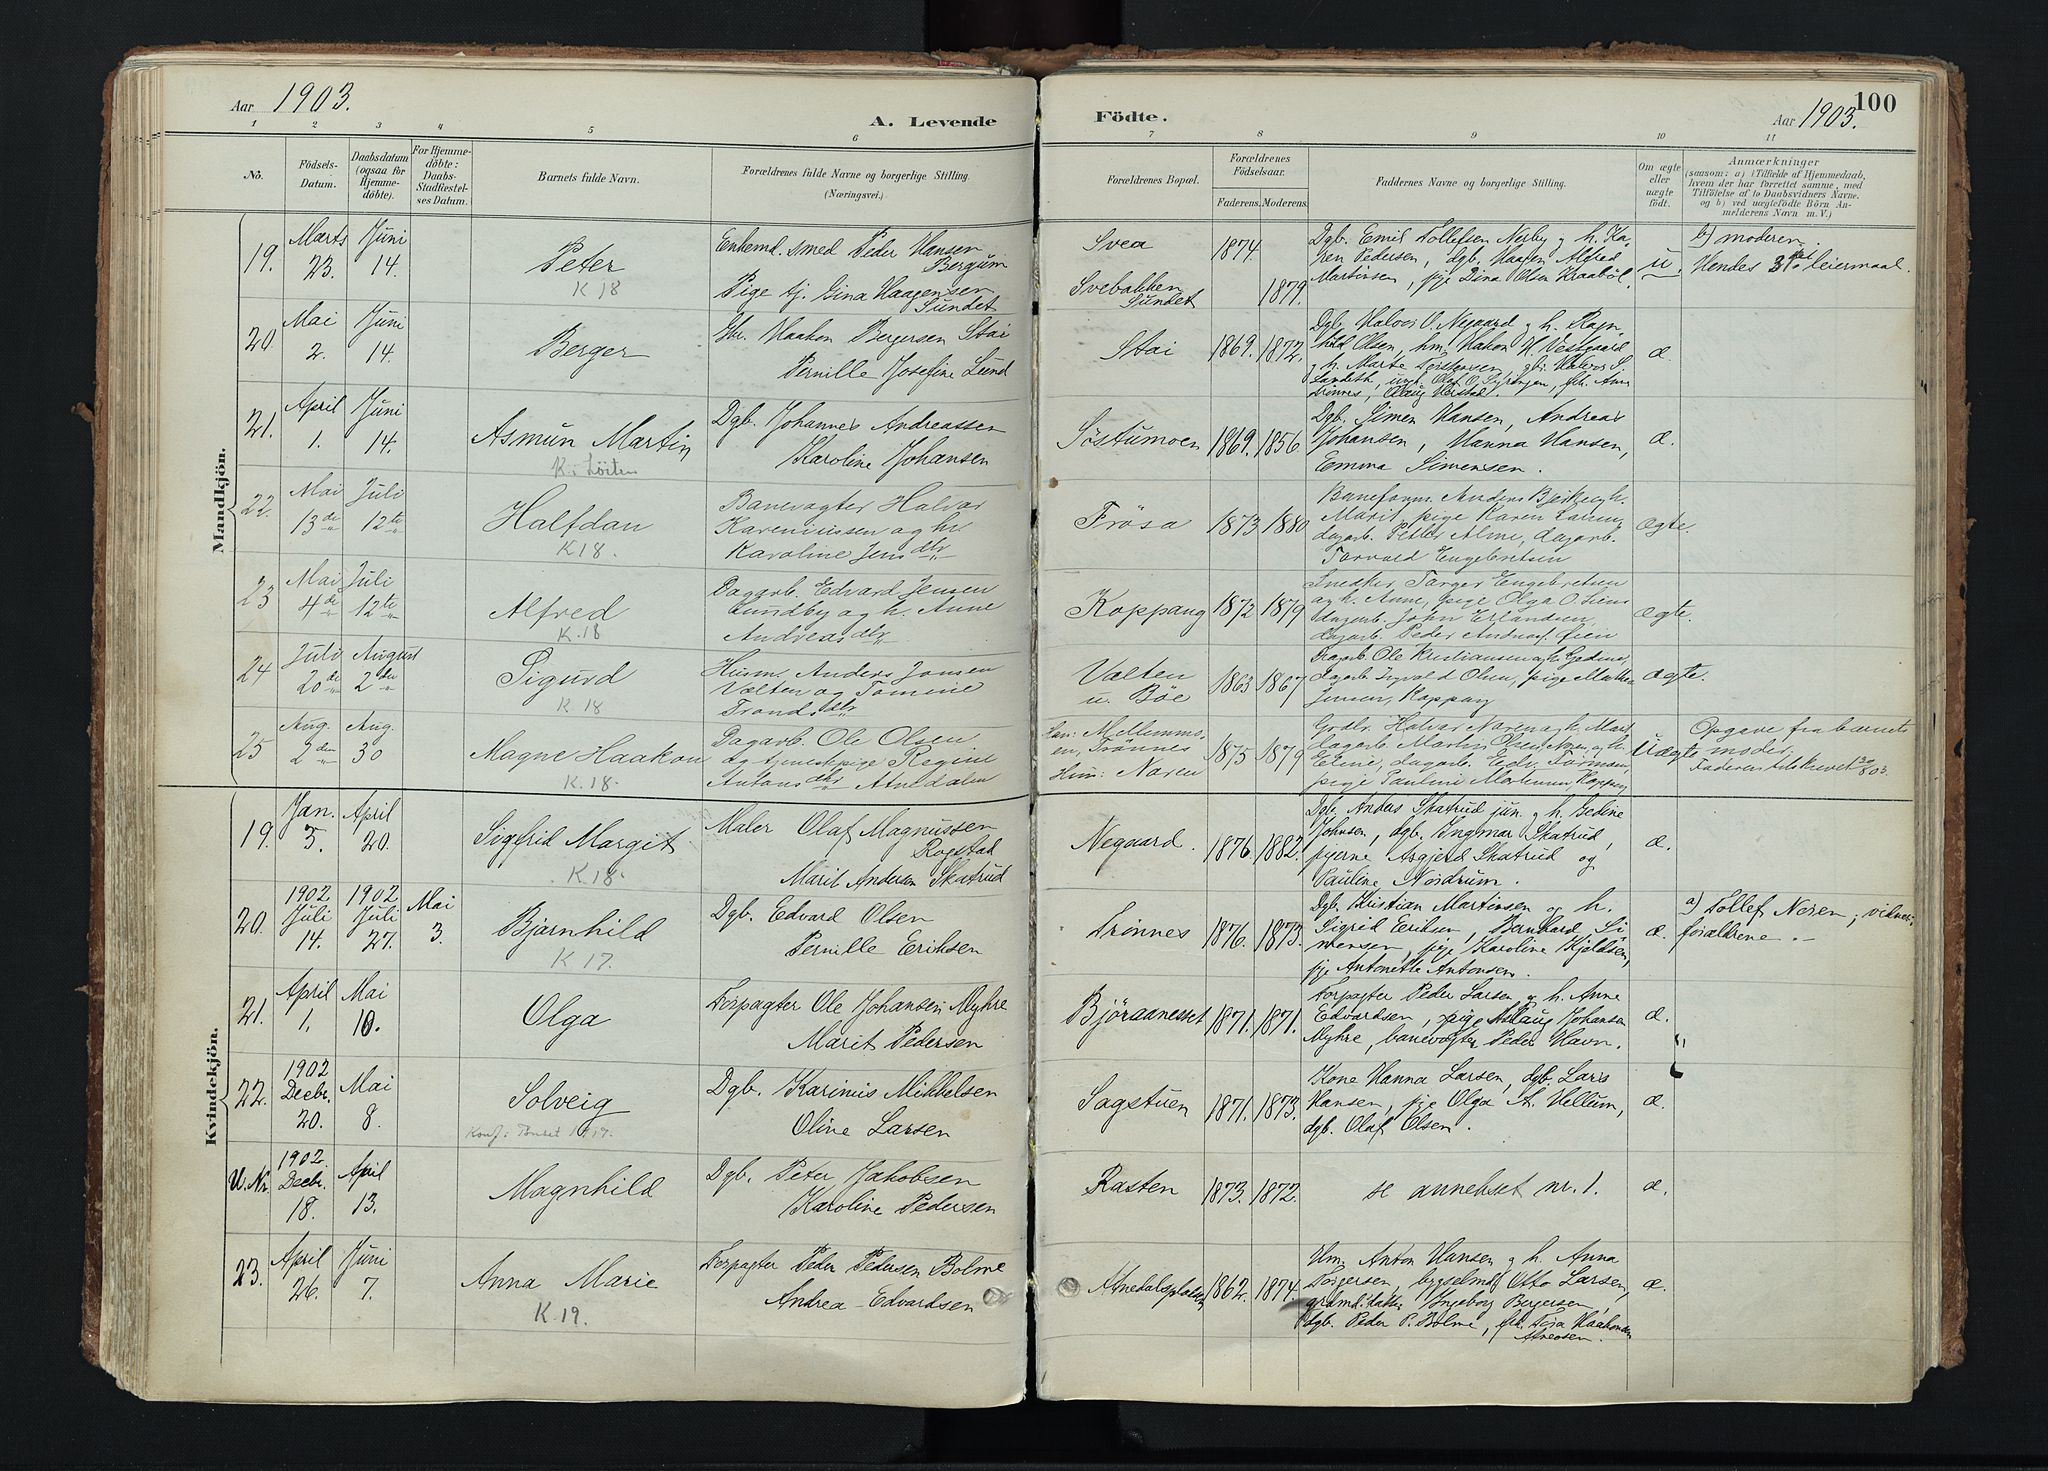 Aar 1903.
A. Levende
1 2 3 4 5 6
No.
Födsels-Datum.
Daabsdatum (ogsaa for Hjemmedöbte).
For Hjemmedöbte: Daabs-Stadfæstelses Datum.
Barnets fulde Navn.
Forældrenes fulde Navne og borgerlige Stilling.
(Næringsvei.)
Mandkjön.
19. Marts 23. Juni 14. Peter
K 18
Enkemd. smed Peder Hansen
Bergum
Pige tj. Gina Haagensen
Sundet
20. Mai 2. Juni 14. Berger
Haakon Bergersen Stai
Pernille Josefine Lund
21. April 1. Juni 14. Asmun Martin
K. Löiten
Dgb. Johannes Andreassen
Karoline Johansen
22. Mai 13de Juli 12te Halfdan
K 18.
Banevogter Halvar
Kareniussen og hr.
Karoline Jensdtr
23 Mai 4de Juli 12te Alfred
K.18
Dagarb. Edvard Jensen
Lundby og h. Anne
Andreasdtr
24 Juli 20de August 2den Sigurd
K. 18
Husm. Anders Jonsen
Vælten og Tomine
Trondsdtr
25 Aug. 2den Aug. 30 Magne Haakon
K.18.
Dagarb. Ole Olsen
og tjenestepige Regine
Antonsdtr Atnedalen
Kvindekjön.
19. Jan. 5. April 20. Sigfrid Margit
K.18.
Maler Olaf Magnussen
Rogstad
Marit Andersen Skatrud
20. 1902 Juli 14. 1902 Juli 27. Mai 3. Bjarnhild
K 17.
Dgb. Edvard Olsen
Pernille Eriksen
21. April 1. Mai 10. Olga
Forpagter Ole Johansen Myhre
Marit Pedersen
22. 1902 Decbr. 20. Mai 8. Solveig
Konf: Tønset 1917.
Dgb. Karinius Mikkelsen
Oline Larsen
U.Nr. 1902 Decbr. 18. April 13. Magnhild
Dgb. Peter Jakobsen
Karoline Pedersen
23. April 26. Juni 7. Anna Marie
K.19.
Forpagter Peder Pedersen Bolme
Andrea Edvardsen
Födte.
Aar 1903.
100
7 8 9 10 11
Forældrenes Bopæl.
Forældrenes Födselsaar.
Faderens. Moderens.
Faddernes Navne og borgerlige Stilling.
Om ægte eller uægte födt.
Anmærkninger
(saasom: a) i Tilfælde af Hjemmedaab,
hvem der har forrettet samme, med
Tilföielse af to Daabsvidners Navne.
og b) ved uægtefödte Börn Anmelderens Navn m. V.)
Svea 1874.
Svebakken
Sundet 1879.
Dgb. Emil Tollefsen Nerby og h. Karen Pedersen, dgb. Haagen Alfred
Martinsen, pige Dina Olsen Kraabøl.
u.
b) moderen.
Hendes 3die leiermaal.
Stai 1869. 1872.
Dgb. Halvor O. Negaard og h. Ragnhild Olsen, hm. Hakon H. Vestgaard
og h. Marte Torstensen, gbr. Halvor S.
æ.
Söstumoen 1869. 1856.
Dgb. Simen Hansen, Andreas
Johansen, Hanna Hansen,
Emma Simensen.
æ.
Tröså 1873 1880
Baneform. Anders Bjerke og h.
Marit, pige Karen Larsen,
dagarb. Petter Alme, dagarb.
Torvald Engebretsen
ægte.
Koppang 1872 1879
Snedker Targer Engebretsen
og h. Anne, pige Olga O. Liens
dagarb. John Erlandsen,
dagarb. Peder Øien
ægte.
Vælten
u. Bøe 1863 1867
Dagarb. Ole Kristiansen og h. Gedine,
dagarb. Ingvald Olsen, pige Marthea
Jensen, Koppang
ægte.
Han: Mellemmoen, Trønnes
Hun: Noren 1875 1879
Grdbr. Halvar Noren og h. Marit,
dagarb. Martin Olsen Noren og h.
Eline, dagarb. Edv. Torman,
pige Pauline Mortensen, Koppang
Uægte
Opgave fra barnets
moder.
Faderen tilskrevet 30/8 03.
Negaard. 1876. 1882.
Dgb. Anders Skatrud jun. og h. Gedine
Johnsen, dgb. Ingmar Skatrud,
pigerne Asgjerd Skatrud og
Pauline Nordrum.
æ.
Trønnes 1876. 1873.
Dgb. Kristian Martinsen og h.
Sigrid Eriksen, Bernhard Simensen, pige Karoline Kjeldsen,
pige Antonette Antonsen.
æ.
a) Tollef Noren; vidner:
forældrene.
Björaanesset 1871. 1871.
Forpagter Peder Larsen og h. Anne
Edvardsen, pige Aslaug Johansen
Myhre, banevogter Peder Havn.
æ.
Sagstuen 1871. 1873.
Kone Hanna Larsen, dgb. Lars
Hansen, pige Olga A. Hellum,
dgb. Olaf Olsen.
æ.
Rasten 1873. 1872.
se annekset nr. 1.
æ.
Atnedalspladsen 1862. 1874.
Hm. Anton Hansen og h. Anna
Torgersen, bygselmd. Otto Larsen,
grdmd. datter Ingeborg Bergersen,
dgb. Peder P. Bolme, frk. Tora Haakonsen
Atneosen.
æ.